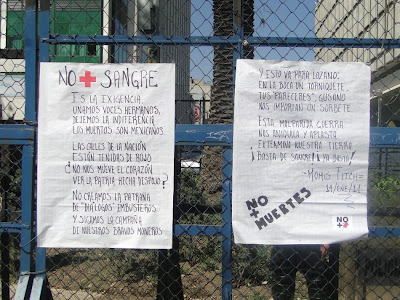 NO + SANGRE
ES LA EXIGENCIA
UNAMOS VOCES HERMANOS,
DEJEMOS LA INDIFERENCIA
LOS MUERTOS SON MEXICANOS.
LAS CALLES DE LA NACIÓN
ESTÁN TEÑIDAS DE ROJO
¿NO NOS MUEVE EL CORAZÓN
VER LA PATRIA HECHA DESPOJO?
NO CREAMOS LA PATRAÑA
DE "DIÁLOGOS" EMBUSTEROS
Y SIGAMOS LA CAMPAÑA
DE NUESTROS BRAVOS MONEROS
Y ESTO VA PARA LOZANO:
EN LA BOCA UN TORNIQUETE,
TUS "PARECERES", GUSANO
NOS IMPORTAN UN SORBETE
ESTA MALPARIDA GUERRA
NOS ANIQUILA Y APLASTA
EXTERMINA NUESTRA TIERRA
¡BASTA DE SANGRE! ¡YA BASTA!
NO
+
MUERTES
NO
+